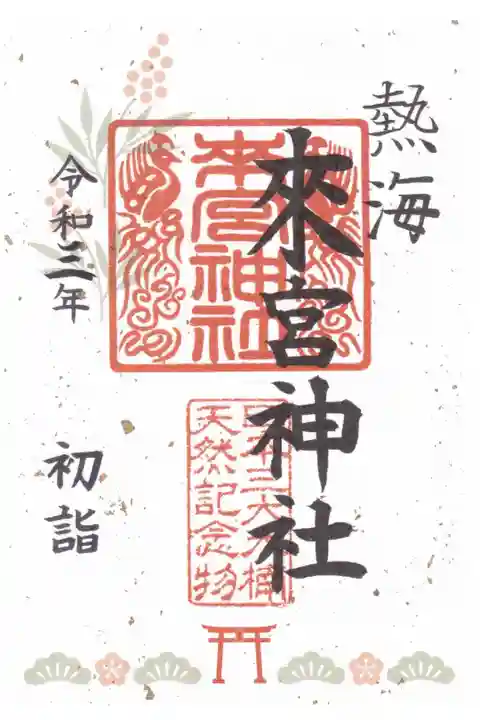 熱海
來宮神社
來宮神社
天然記念物
令和三年
初詣